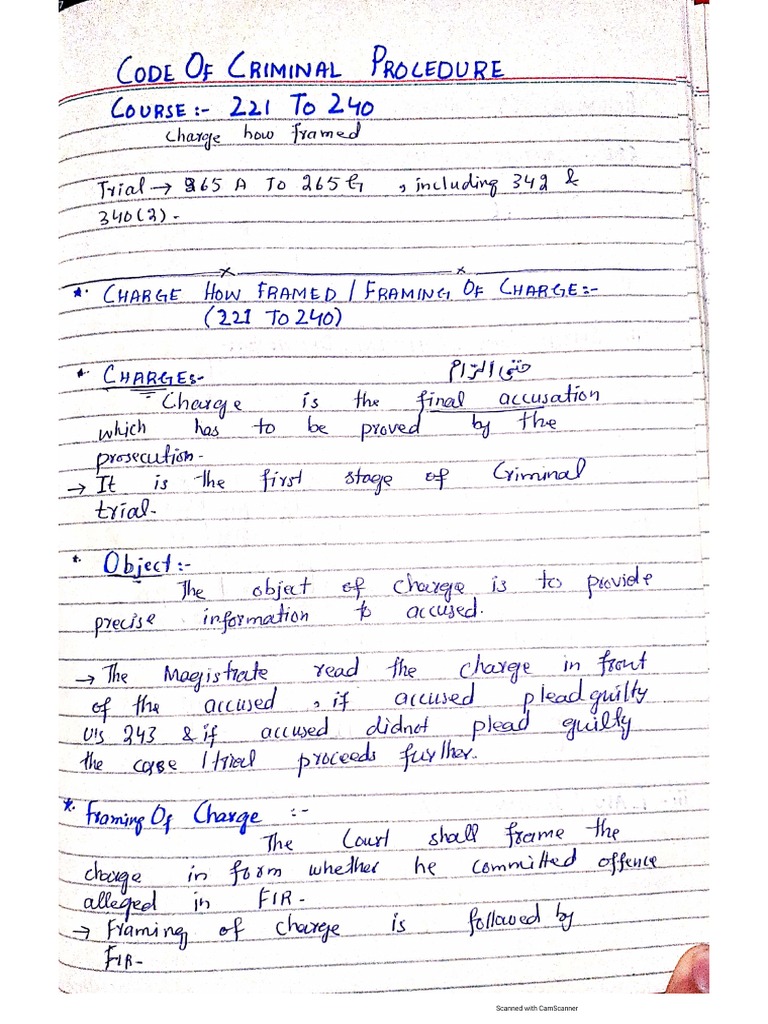 CODE OF CRIMINAL PROCEDURE
COURSE:- 221 TO 240
Charge how framed
Trial → 265 A TO 265 G, including 342 &
340(2).
* CHARGE HOW FRAMED / FRAMING OF CHARGE:-
(221 TO 240)
* CHARGES:- حتمی الزام
Charge is the final accusation
which has to be proved by the
prosecution.
→ It is the first stage of Criminal
trial.
* Object:-
The object of charge is to provide
precise information to accused.
→ The Magistrate read the charge in front
of the accused, if accused plead guilty
U's 243 & if accused didnot plead guilty
the case / trial proceeds further.
* Framing Of Charge :-
The Court shall frame the
charge in form whether he committed offence
alleged in FIR.
→ Framing of charge is followed by
FIR.
Scanned with CamScanner